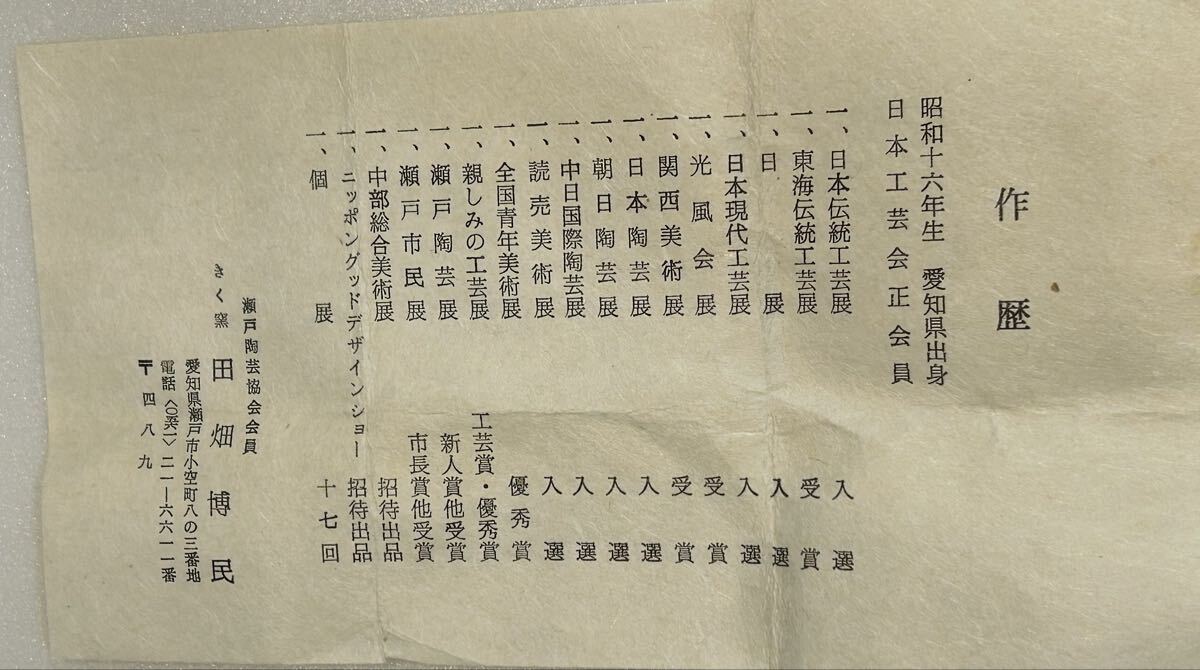 作歴
昭和十六年生 愛知県出身
日本工芸会正会員
一、日本伝統工芸展 入選
一、東海伝統工芸展 受賞
一、日展 入選
一、日本現代工芸展 入選
一、光風会展 受賞
一、関西美術展 受賞
一、日本陶芸展 入選
一、朝日陶芸展 入選
一、中日国際陶芸展 入選
一、読売美術展 入選
一、全国青年美術展 優秀賞
一、親しみの工芸展 工芸賞・優秀賞
一、瀬戸陶芸展 新人賞他受賞
一、瀬戸市民展 市長賞他受賞
一、中部総合美術展 招待出品
一、ニッポングッドデザインショー 招待出品
一、個展 十七回
瀬戸陶芸協会会員
きく窯 田畑博民
愛知県瀬戸市小空町八の三番地
電話〈〇五六一〉二一―六六一一番
〒四八九